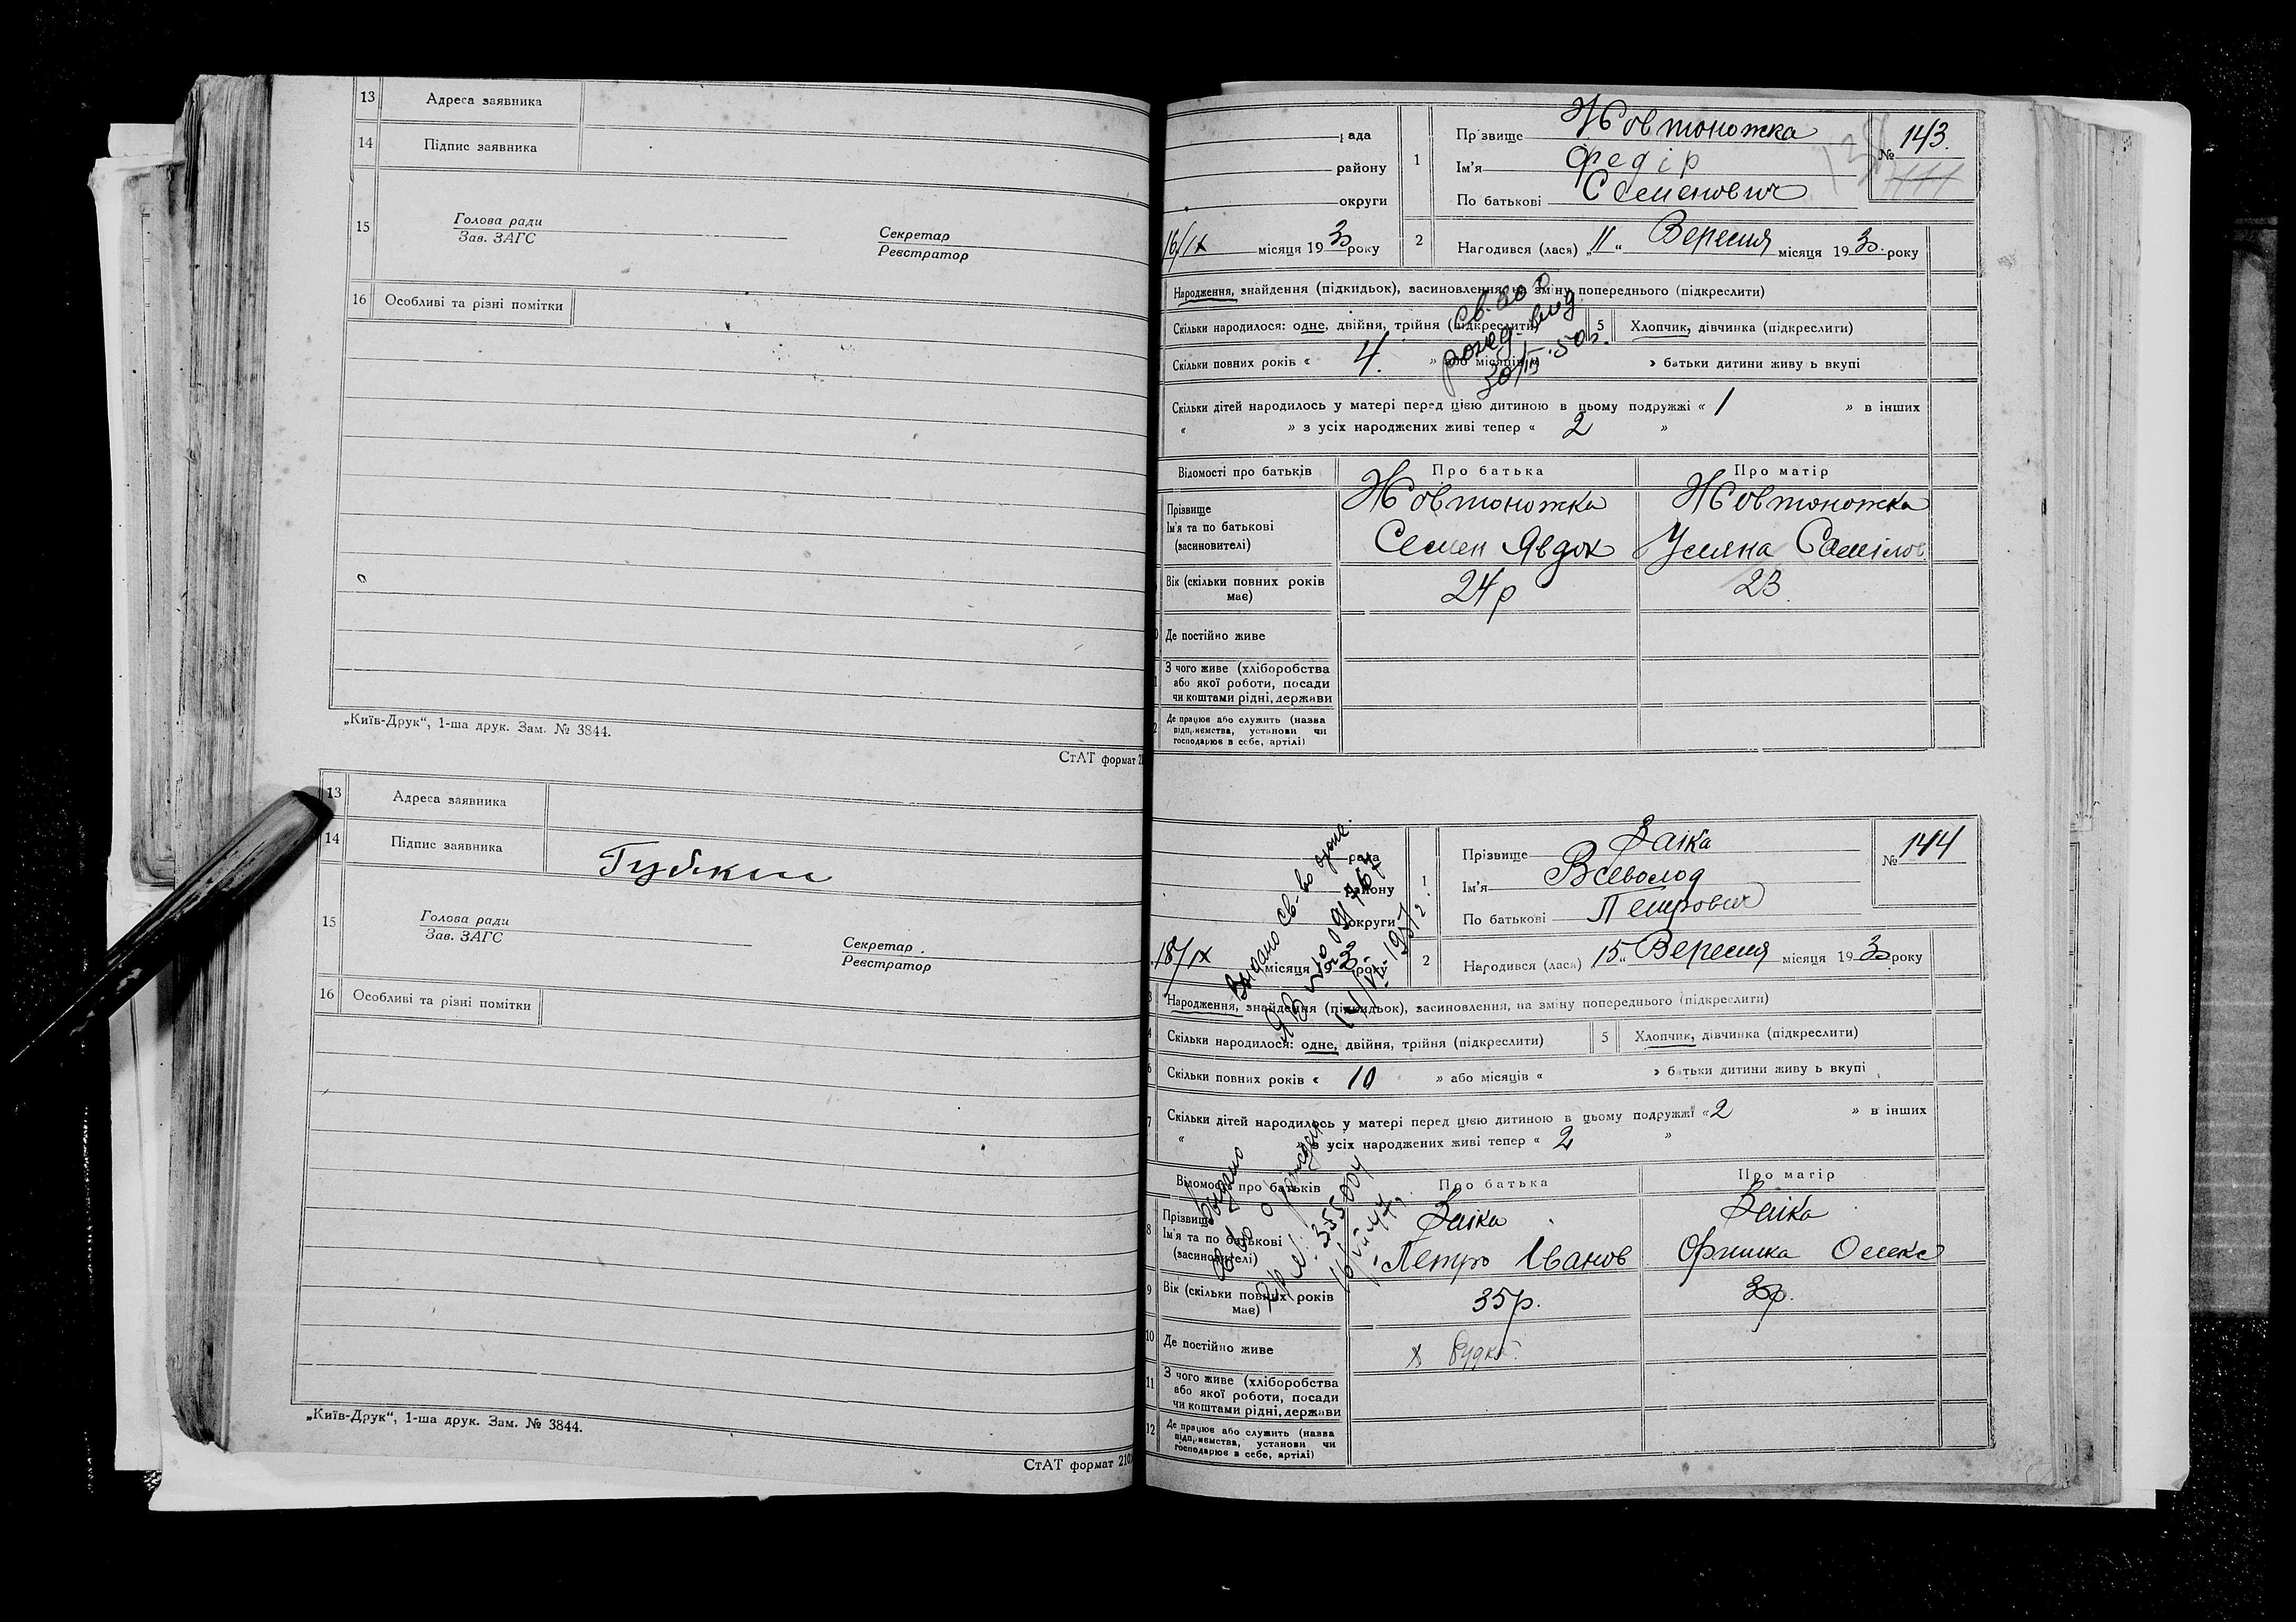 13 Адреса заявника
14 Підпис заявника
15 Голова ради
Зав. ЗАГС
Секретар
Реєстратор
16 Особливі та різні помітки
„Київ-Друк“, 1-ша друк. Зам. № 3844.
СтАТ формат
13 Адреса заявника
14 Підпис заявника
15 Голова ради
Зав. ЗАГС
Секретар
Реєстратор
16 Особливі та різні помітки
„Київ-Друк“, 1-ша друк. Зам. № 3844.
СтАТ формат 210
рада
району
округи
16/IX місяця 1930 року
1 Прізвище Жовтоножка
Ім'я Федір
По батькові Семенович
№ 143.
2 Народився (лася) „11“ Вересня місяця 1930 року
Народження, знайдення (підкидьок), засиновлення, на зміну попереднього (підкреслити)
Скільки народилося: одне, двійня, трійня (підкреслити) 5 Хлопчик, дівчинка (підкреслити)
Скільки повних років « 4. » або місяців « » батьки дитини живуть вкупі
Скільки дітей народилось у матері перед цією дитиною в цьому подружжі « 1 » в інших
« » з усіх народжених живі тепер « 2 »
Відомості про батьків Про батька Про матір
Прізвище Жовтоножка Жовтоножка
Ім'я та по батькові
(засиновителі) Семен Явдок Уляна
Вік (скільки повних років
має) 24р 23
Де постійно живе
З чого живе (хліборобства
або якої роботи, посади
чи коштами рідні, держави
Де працює або служить (назва
підприємства, установи чи
господарює в себе, артілі)
рада
району
округи
18/IX місяця 1930 року
1 Прізвище Заіка
Ім'я Всеволод
По батькові Петрович
№ 144
2 Народився (лася) „15“ Вересня місяця 1930 року
3 Народження, знайдення (підкидьок), засиновлення, на зміну попереднього (підкреслити)
4 Скільки народилося: одне, двійня, трійня (підкреслити) 5 Хлопчик, дівчинка (підкреслити)
6 Скільки повних років « 10 » або місяців « » батьки дитини живуть вкупі
7 Скільки дітей народилось у матері перед цією дитиною в цьому подружжі « 2 » в інших
« » з усіх народжених живі тепер « 2 »
Відомості про батьків Про батька Про матір
8 Прізвище Заіка Заіка
Ім'я та по батькові
(засиновителі) Петро Іванов Оришка Олекс
9 Вік (скільки повних років
має) 35р.
10 Де постійно живе
11 З чого живе (хліборобства
або якої роботи, посади
чи коштами рідні, держави
12 Де працює або служить (назва
підприємства, установи чи
господарює в себе, артілі)